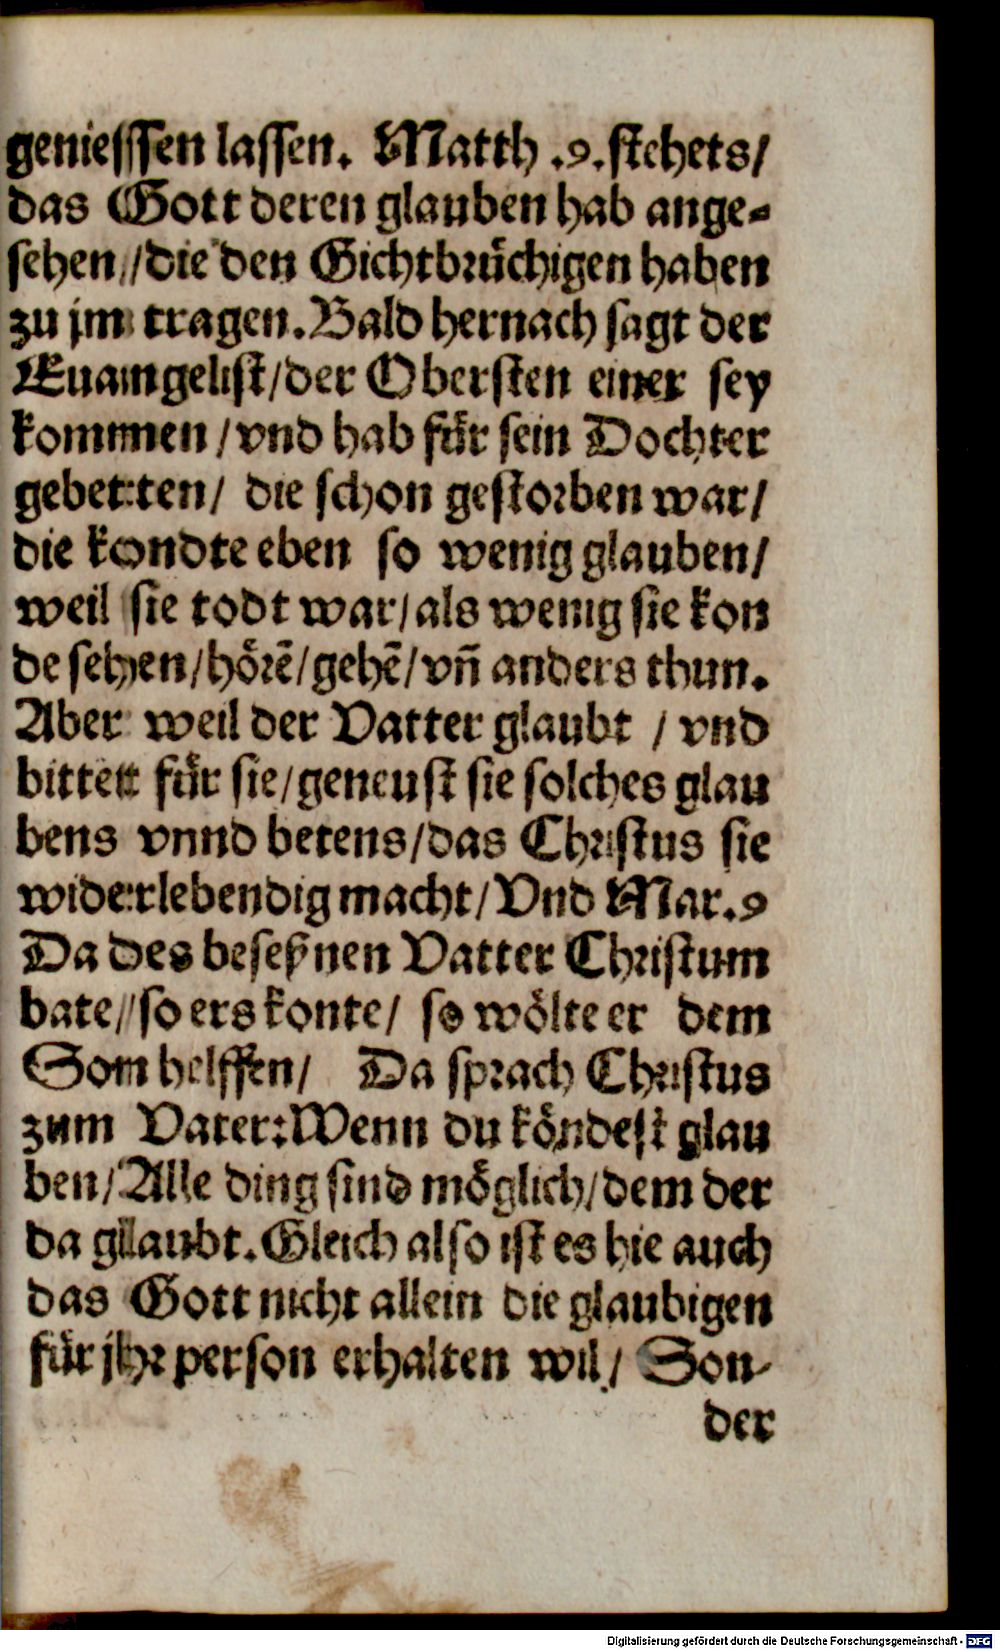 geniessen lassen. Matth .9. stehets/
das Gott deren glauben hab ange-
sehen/die den Gichtbrüchigen haben
zu jm tragen. Bald hernach sagt der
Euamgelist/der Obersten einer sey
kommen /vnd hab für sein Dochter
gebetten/ die schon gestorben war/
die kondte eben so wenig glauben/
weil sie todt war/als wenig sie kon
de sehen/hörē/gehē/vn̄ anders thun.
Aber weil der Vatter glaubt / vnd
bittet für sie/geneust sie solches glau
bens vnnd betens/das Christus sie
widerlebendig macht/Vnd Mar.9
Da des beseßnen Vatter Christum
bate/so ers konte/ so wölte er dem
Son helffen/ Da sprach Christus
zum Vater:Wenn du köndest glau
ben/Alle ding sind möglich/dem der
da glaubt. Gleich also ist es hie auch
das Gott nicht allein die glaubigen
für jhr person erhalten wil/ Son-
der
Digitalisierung gefördert durch die Deutsche Forschungsgemeinschaft - DFG